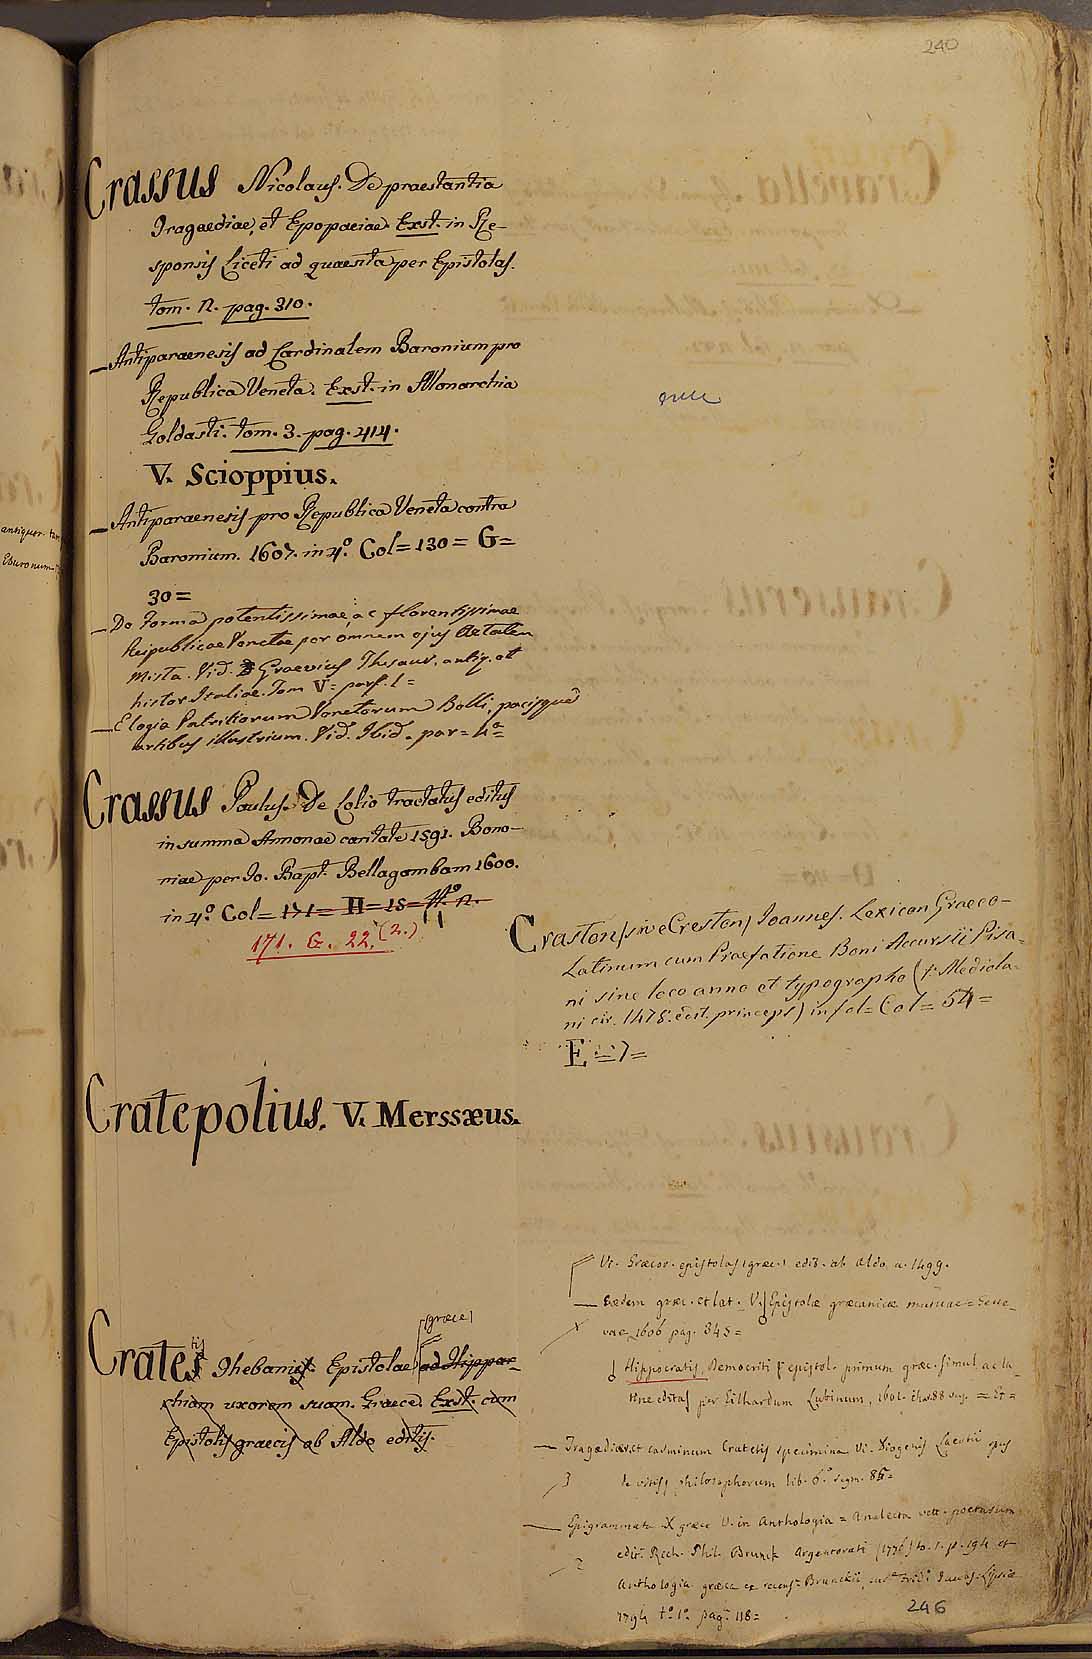 240
Crassus Nicolaus. De praestantia
Tragaediae, et Epopaeiae. Exst. in Re-
sponsis Liceti ad quaesita per Epistolas.
tom. 2. pag. 310.
— Antiparaenesis ad Cardinalem Baronium pro
Republica Veneta. Exst. in Monarchia
Goldasti. tom. 3. pag. 414.
V. Scioppius.
— Antiparaenesis pro Republica Veneta contra
Baronium. 1607. in 4.º Col = 130 = G =
30 =
— De Forma potentissimae, ac florentissimae
Reipublicae Venetae per omnem ejus Aetatem
Mista. Vid. Graevius Thesaur. antiq. et
histor Italiae. Tom V = pars. 1 =
— Elogia Patritiorum Venetorum Belli, pacisque
artibus illustrium. Vid. Ibid. par = 4ª =
Crassus Paulus. De Lolio tractatus editus
in summa Annonae caritate 1591. Bono-
niae per Io. Bapt. Bellagambam 1600.
in 4.º Col = 171 = H = 15 = N.º 2.
171. G. 22. (2.)
Craston, sive Creston, Ioannes. Lexicon Graeco-
Latinum cum Praefatione Boni Accursii Pisa-
ni sine loco anno et typographo (f. Mediola-
ni cir. 1478. edit. princeps) in fol = Col = 54 =
E = 7 =
Cratepolius. V. Merssæus.
Vi. Græcor. epistolas (græc.) edit. ab Aldo a. 1499.
— Eædem græc. et lat. V. Epistolæ græcanicæ mutuae = Gene-
vae 1606 pag. 345 =
Hippocratis, Democriti epistol. primum græc. simul ac la
tine editas per Eilhardum Lubinum, 1601. = Et =
(græce)
Cratetis Thebani Epistolae ad Hippar-
chiam uxorem suam. Graece. Exst. cum
Epistolis graecis ab Aldo editis.
— Tragædiar. et carminum Cratetis specimina Vi. Diogenis Laertii
de vitis philosophorum lib. 6.º segm. 85 =
3
— Epigrammata X græce V. in Anthologia = Analecta vett. poetarum
edit. Rich. Phil. Brunck Argentorati (1776) to. 1. p. 194 et
2
Anthologia græca ex recens = Brunckii, Jacobs. Lipsiæ
1794 t.º 1.º pag. 118 =
246